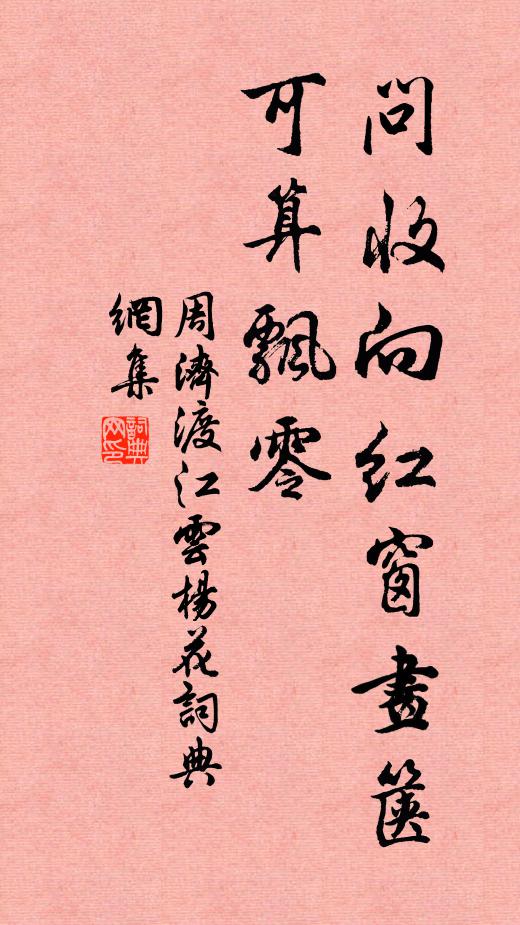 問收向紅窗畫篋
可算飄零
周濟渡江雲楊花詞典
網集
詞典
網印